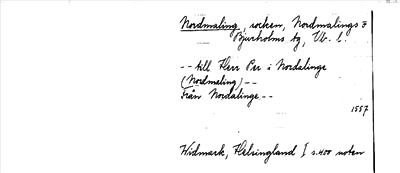 Nordmaling, socken, Nordmalings o
Bjurholms tg, Vb. l.
-- till Herr Per i Nordalinge
(Nordmaling) --
från Nordalinge --
1557
Widmark, Helsingland I s. 400 noten